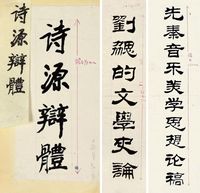 詩源辯體
詩源辯體
劉勰的文學史論
先秦音乐美学思想论稿